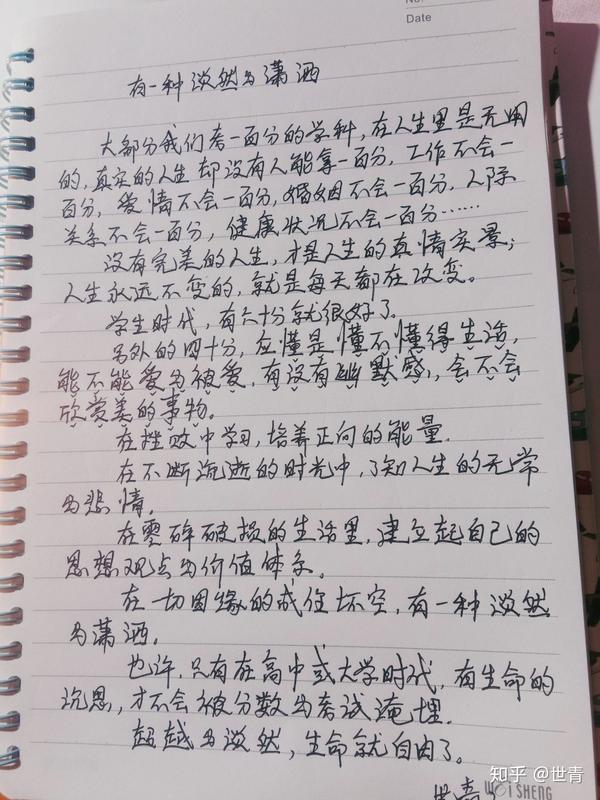 No.
Date
有一种淡然与潇洒
大部分我们考一百分的学科，在人生里是无用
的，真实的人生却没有人能拿一百分，工作不会一
百分，爱情不会一百分，婚姻不会一百分，人际
关系不会一百分，健康状况不会一百分……
没有完美的人生，才是人生的真情实景；
人生永远不变的，就是每天都在改变。
学生时代，有六十分就很好了。
另外的四十分，应懂是懂不懂得生活，
能不能爱与被爱，有没有幽默感，会不会
欣赏美的事物。
在挫败中学习，培养正向的能量.
在不断流逝的时光中，了知人生的无常
与悲情.
在零碎破损的生活里，建立起自己的
思想观点与价值体系。
在一切因缘的成住坏空，有一种淡然
与潇洒.
也许，只有在高中或大学时代，有生命的
沉思，才不会被分数与考试淹埋.
超越与淡然，生命就自由了。
世青
WEISHENG
知乎 @世青